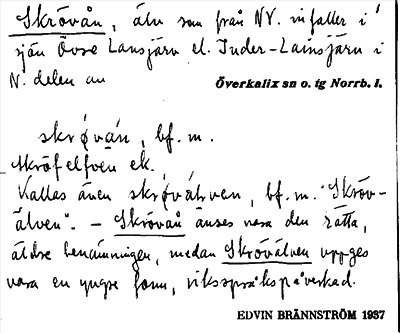 Skrövån, älv som från NV. infaller i
sjön Övre Lansjärv el. Inder-Lainsjärv i
N. delen av Överkalix sn o. tg Norrb. l.
skrǿván, bf. m.
Skröfelfven ek.
Kallas även skrǿvä̀lven, bf. m. "Skröv-
älven". – Skrövån anses vara den rätta,
äldre benämningen, medan Skrövälven uppges
vara en yngre form, riksspråkspåverkad.
EDVIN BRÄNNSTRÖM 1937